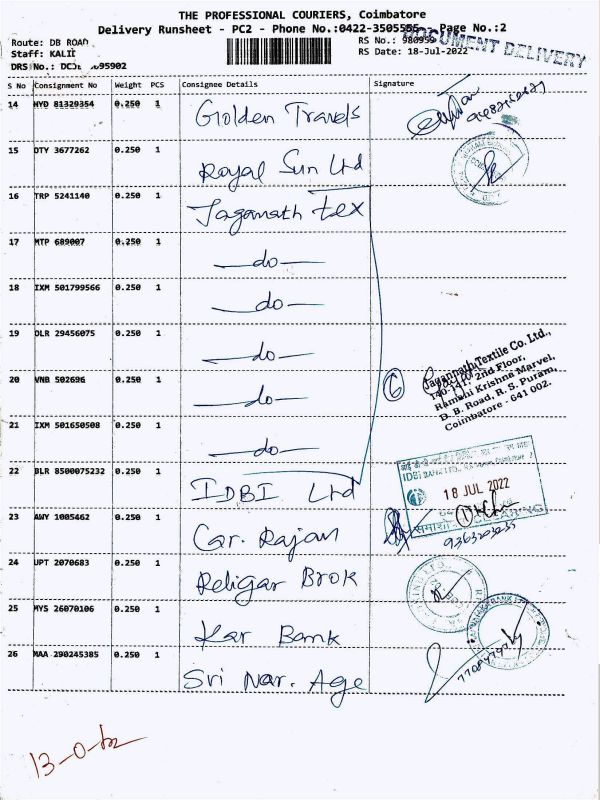 THE PROFESSIONAL COURIERS, Coimbatore
Delivery Runsheet - PC2 - Phone No.:0422-3505555 Page No.:2
DOCUMENT DELIVERY
Route: DB ROAD
RS No.: 980959
Staff: KALII
RS Date: 18-Jul-2022
DRS No.:
S No Consignment No Weight PCS Consignee Details Signature
14 HYD 81329354 0.250 1 Golden Travels
15 DTY 3677262 0.250 1 Royal Sun Ltd
16 TRP 5241140 0.250 1 Jaganath tex
17 MTP 689007 0.250 1 —do—
18 IXM 501799566 0.250 1 —do—
19 DLR 29456075 0.250 1 —do—
20 VNB 502696 0.250 1 —do—
6
Jagannath Textile Co. Ltd.,
140-141, 2nd Floor,
Ramani Krishna Marvel,
D. B. Road, R. S. Puram,
Coimbatore - 641 002.
21 IXM 501650508 0.250 1 —do—
22 BLR 8500075232 0.250 1 IDBI Ltd
IDBI BANK LTD
18 JUL 2022
CLEARING
23 AWY 1005462 0.250 1 Gr. Rajan
24 UPT 2070683 0.250 1 Religar Brok
25 MYS 26070106 0.250 1 Kar Bank
26 MAA 290245385 0.250 1 Sri Nar. Age